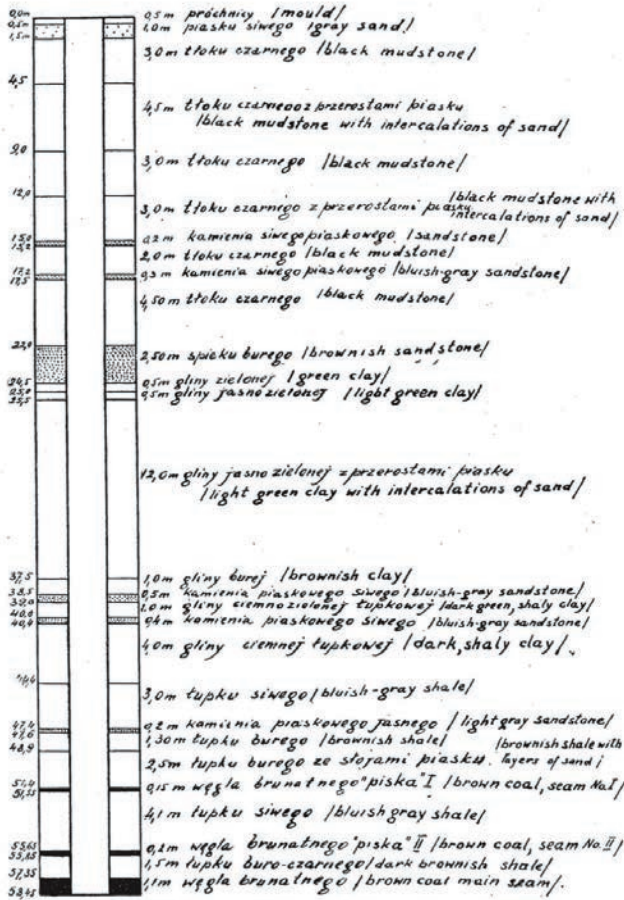 0,0m 0,5m próchnicy /mould/
0,5m 1,0m piasku siwego /gray sand/
1,5m
3,0m tłoku czarnego /black mudstone/
4,5
4,5m tłoku czarnego z przerostami piasku
/black mudstone with intercalations of sand/
9,0
3,0m tłoku czarnego /black mudstone/
12,0
3,0m tłoku czarnego z przerostami piasku /black mudstone with
intercalations of sand/
15,0 0,2m kamienia siwego piaskowego /sandstone/
15,2
2,0m tłoku czarnego /black mudstone/
17,2 0,3m kamienia siwego piaskowego /bluish-gray sandstone/
17,5
4,50m tłoku czarnego /black mudstone/
22,0
2,50m spieku burego /brownish sandstone/
24,5 0,5m gliny zielonej /green clay/
25,0 0,5m gliny jasno zielonej /light green clay/
25,5
12,0m gliny jasno zielonej z przerostami piasku
/light green clay with intercalations of sand/
37,5 1,0m gliny burej /brownish clay/
38,5 0,5m kamienia piaskowego siwego /bluish-gray sandstone/
39,0 1,0m gliny ciemnozielonej łupkowej /dark green, shaly clay/
40,0 0,4m kamienia piaskowego siwego /bluish-gray sandstone/
40,4
4,0m gliny ciemnej łupkowej /dark, shaly clay/
44,4
3,0m łupku siwego /bluish-gray shale/
47,4 0,2m kamienia piaskowego jasnego /light gray sandstone/
47,6 1,30m łupku burego /brownish shale/
48,9 2,5m łupku burego ze słojami piasku /brownish shale with
layers of sand/
51,4 0,15m węgla brunatnego "piska" I /brown coal, seam No. I/
51,55
4,1m łupku siwego /bluish gray shale/
55,65 0,2m węgla brunatnego "piska" II /brown coal, seam No. II/
55,85 1,5m łupku buro-czarnego /dark brownish shale/
57,35 1,1m węgla brunatnego /brown coal main seam/.
58,45